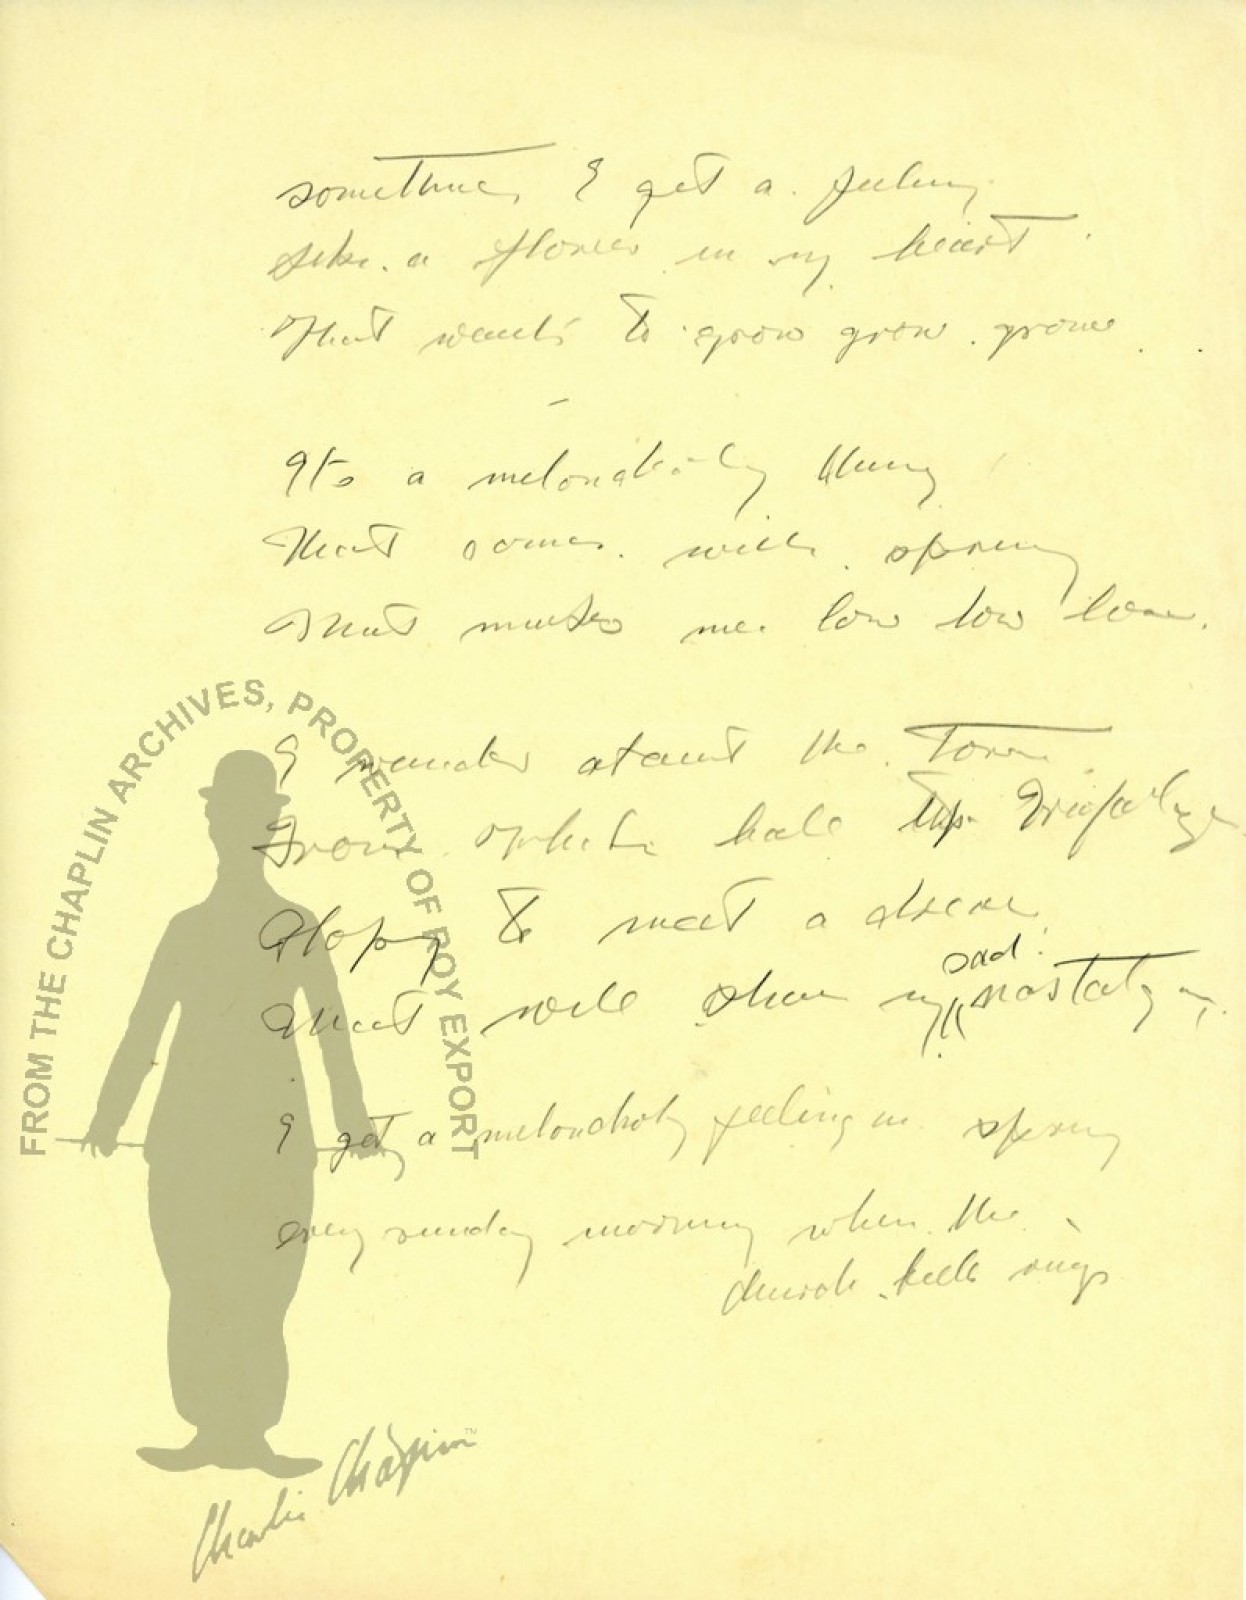 sometimes I get a feeling
like a flower in my heart
That wants to grow grow grow
Its a meloncholy thing
That comes with spring
That makes me low low low.
I wander about the Town
From White hall to Trafalgar
Hoping to meet a dream
sad
That will share my nostalgia
I get a meloncholy feeling in spring
every sunday morning when the
church bells rings
FROM THE CHAPLIN ARCHIVES, PROPERTY OF ROY EXPORT
Charlie Chaplin™